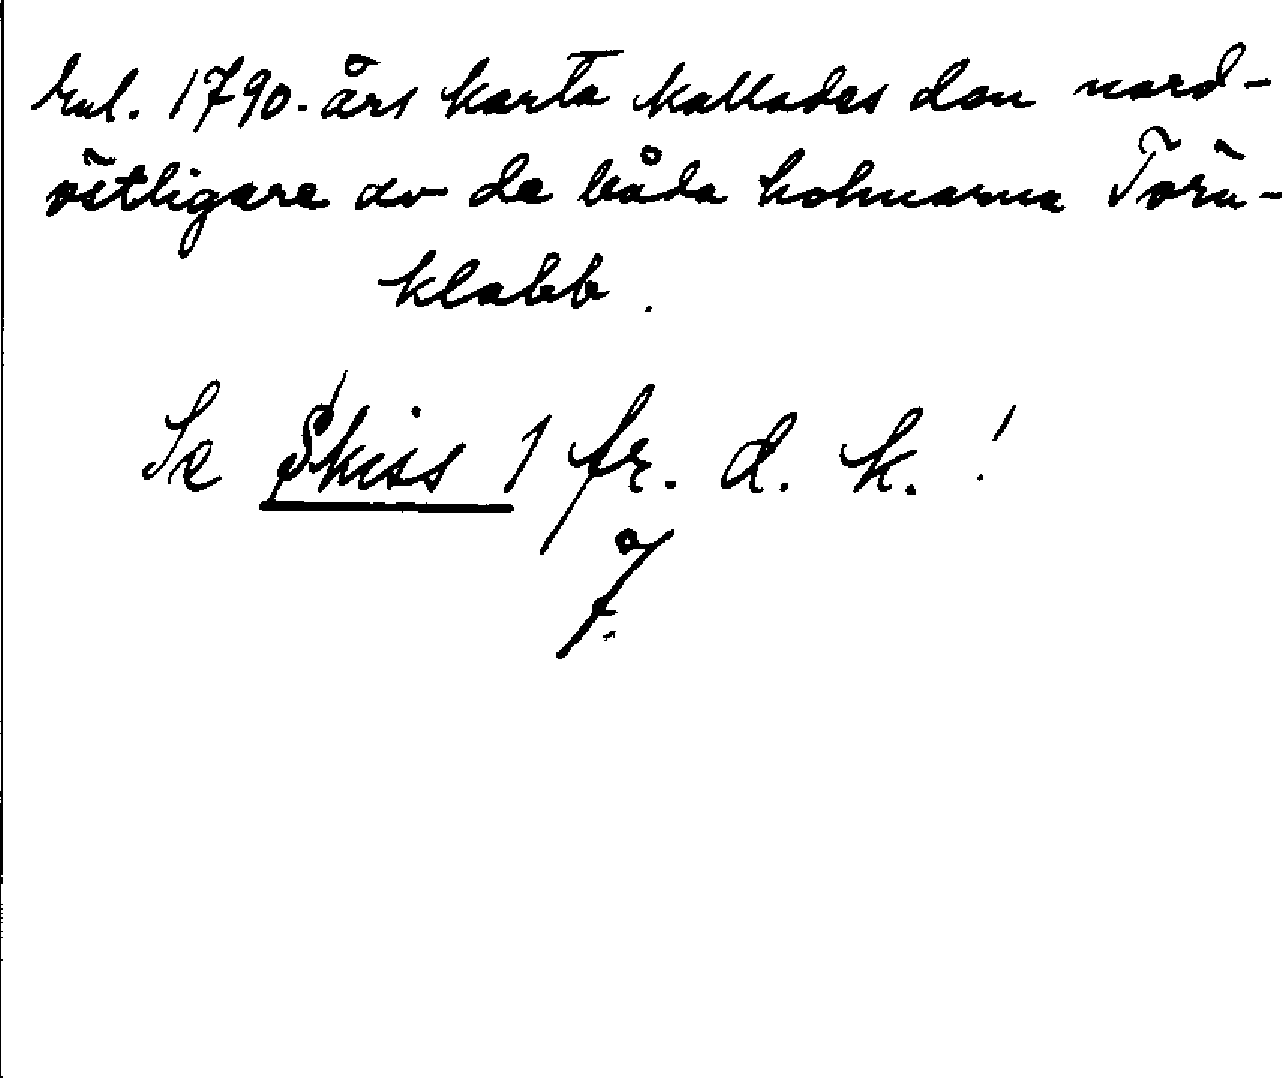 Enl. 1790-års karta kallades den nord-
östligare av de båda holmarna Törn-
klabb.
Se Skiss 1 fr. d. k.!